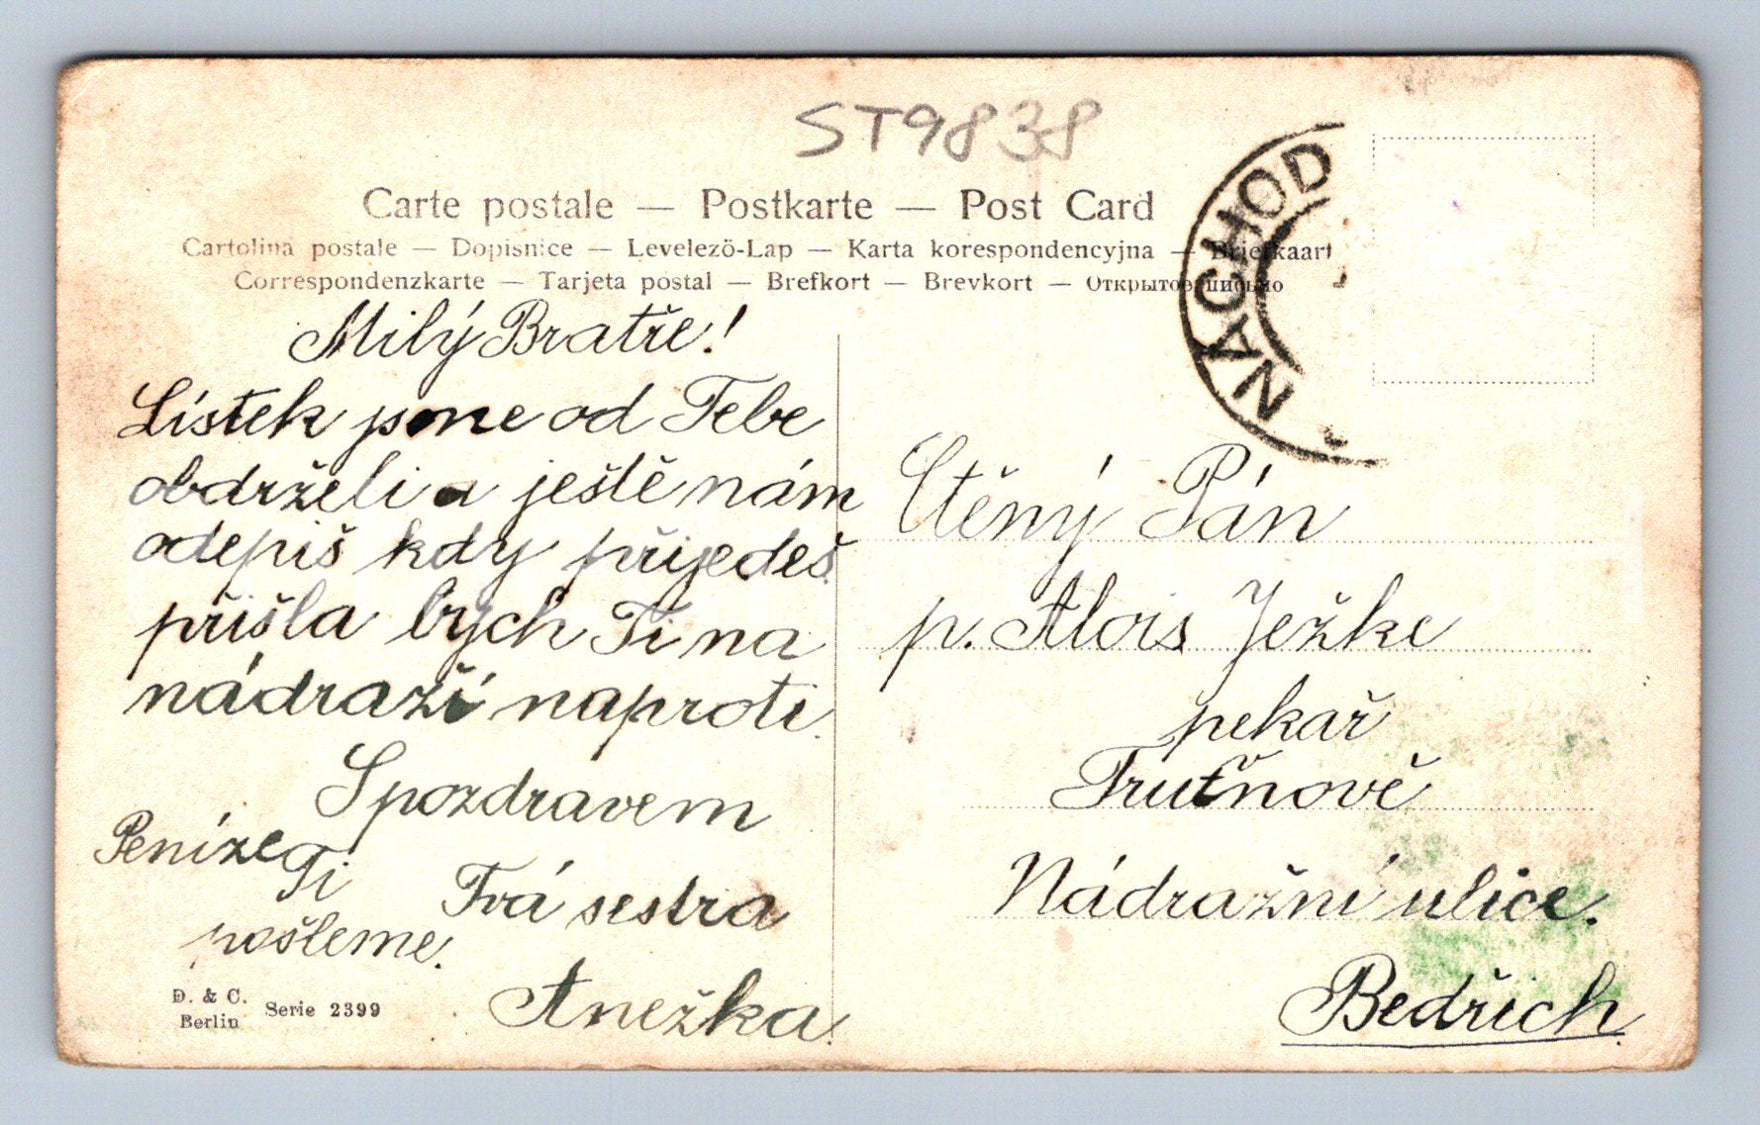 ST9838
Carte postale — Postkarte — Post Card
Cartolina postale — Dopisnice — Levelezö-Lap — Karta korespondencyjna — Briefkaart
Correspondenzkarte — Tarjeta postal — Brefkort — Brevkort — Открытое письмо
NÁCHOD
Milý Bratře!
Lístek jsme od Tebe
obdrželi a ještě nám
odepiš kdy přijedeš
přišla bych Ti na
nádraží naproti.
S pozdravem
Peníze Ti
pošleme.
Tvá sestra
Anežka.
D. & C.
Berlin
Serie 2399
Ctěný Pán
p. Alois Ježke
pekař
Trutnově
Nádražní ulice.
Bedřich.